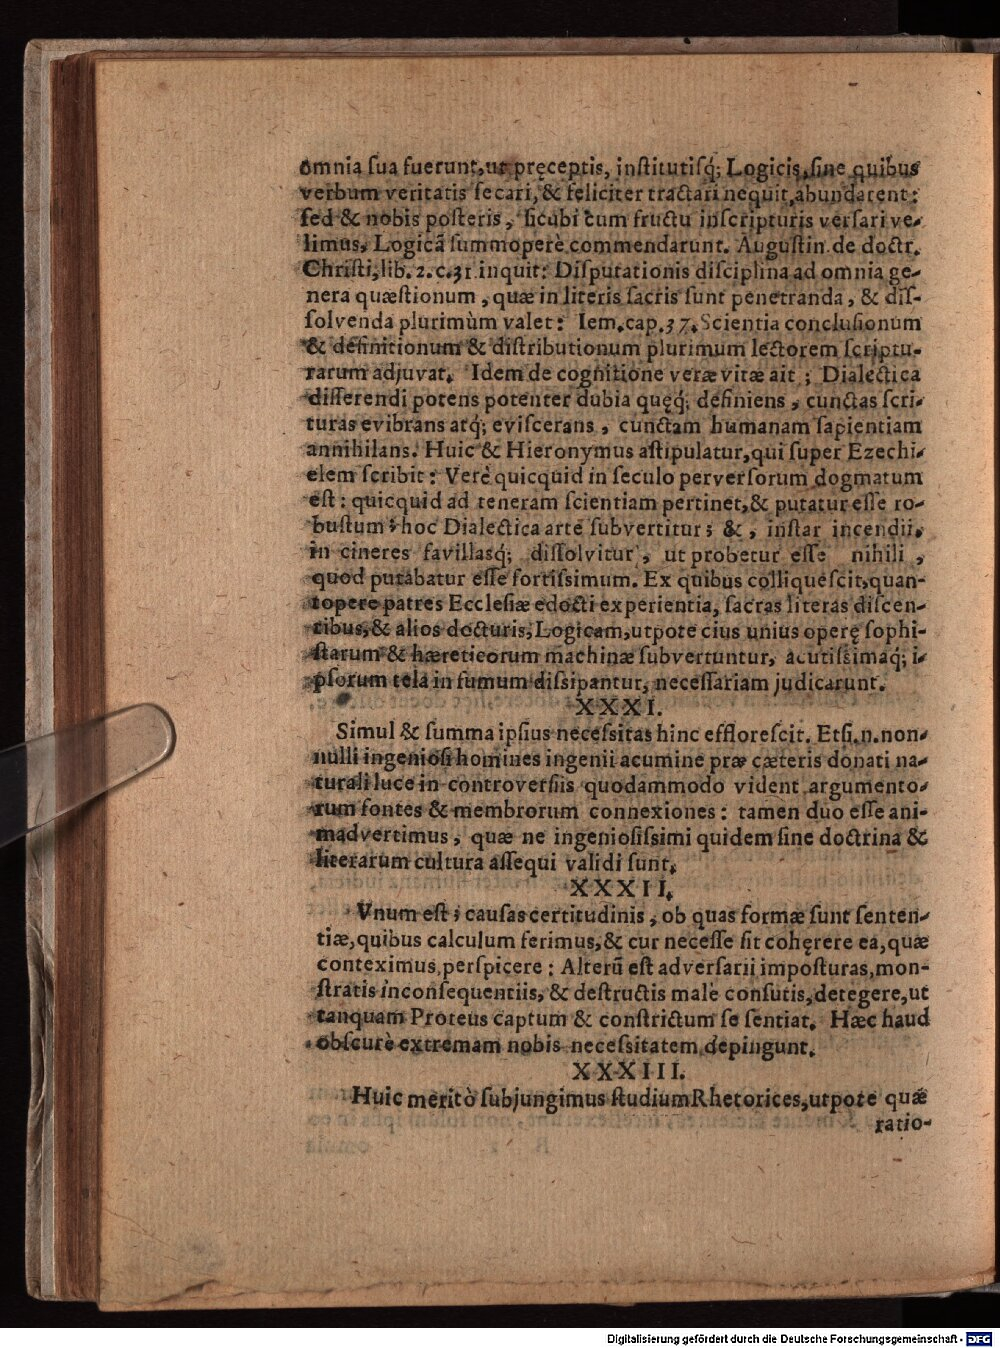 omnia ſua fuerunt, ut pręceptis, inſtitutiſq́; Logicis, ſine quibus
verbum veritatis ſecari, & feliciter tractari nequit, abundarent:
ſed & nobis poſteris, ſicubi cum fructu in ſcripturis verſari ve-
limus, Logicã ſummoperè commendarunt. Auguſtin. de doctr.
Chriſti, lib. 2. c. 31 inquit: Diſputationis diſciplina ad omnia ge-
nera quæſtionum, quæ in literis ſacris ſunt penetranda, & diſ-
ſolvenda plurimùm valet: Iem. cap. 37. Scientia concluſionum
& definitionum & diſtributionum plurimum lectorem ſcriptu-
rarum adjuvat. Idem de cognitione veræ vitæ ait; Dialectica
diſſerendi potens potenter dubia quęq́; definiens, cunctas ſcri-
turas evibrans atq́; eviſcerans, cunctam humanam ſapientiam
annihilans. Huic & Hieronymus aſtipulatur, qui ſuper Ezechi-
elem ſcribit: Verè quicquid in ſeculo perverſorum dogmatum
eſt: quicquid ad teneram ſcientiam pertinet, & putatur eſſe ro-
buſtum: hoc Dialectica arte ſubvertitur; &, inſtar incendii,
in cineres favillaſq́; diſſolvitur, ut probetur eſſe nihili,
quod putabatur eſſe fortiſsimum. Ex quibus colliqueſcit, quan-
topere patres Eccleſiæ edocti experientia, ſacras literas diſcen-
tibus, & alios docturis, Logicam, utpote cius unius operę ſophi-
ſtarum & hæreticorum machinæ ſubvertuntur, acutiſsimaq́; i-
pſorum tela in fumum diſsipantur, neceſſariam judicarunt.
XXXI.
Simul & ſumma ipſius neceſsitas hinc effloreſcit. Etſi. n. non-
nulli ingenioſi homines ingenii acumine præ cæteris donati na-
turali luce in controverſiis quodammodo vident argumento-
rum fontes & membrorum connexiones: tamen duo eſſe ani-
madvertimus, quæ ne ingenioſiſsimi quidem ſine doctrina &
literarum cultura aſſequi validi ſunt.
XXXII.
Vnum eſt; cauſas certitudinis, ob quas formæ ſunt ſenten-
tiæ, quibus calculum ferimus, & cur neceſſe ſit cohęrere ea, quæ
conteximus, perſpicere: Alterũ eſt adverſarii impoſturas, mon-
ſtratis inconſequentiis, & deſtructis malè conſutis, detegere, ut
tanquam Proteus captum & conſtrictum ſe ſentiat. Hæc haud
obſcurè extremam nobis neceſsitatem depingunt.
XXXIII.
Huic meritò ſubjungimus ſtudium Rhetorices, utpote quæ
ratio-
Digitalisierung gefördert durch die Deutsche Forschungsgemeinschaft - DFG